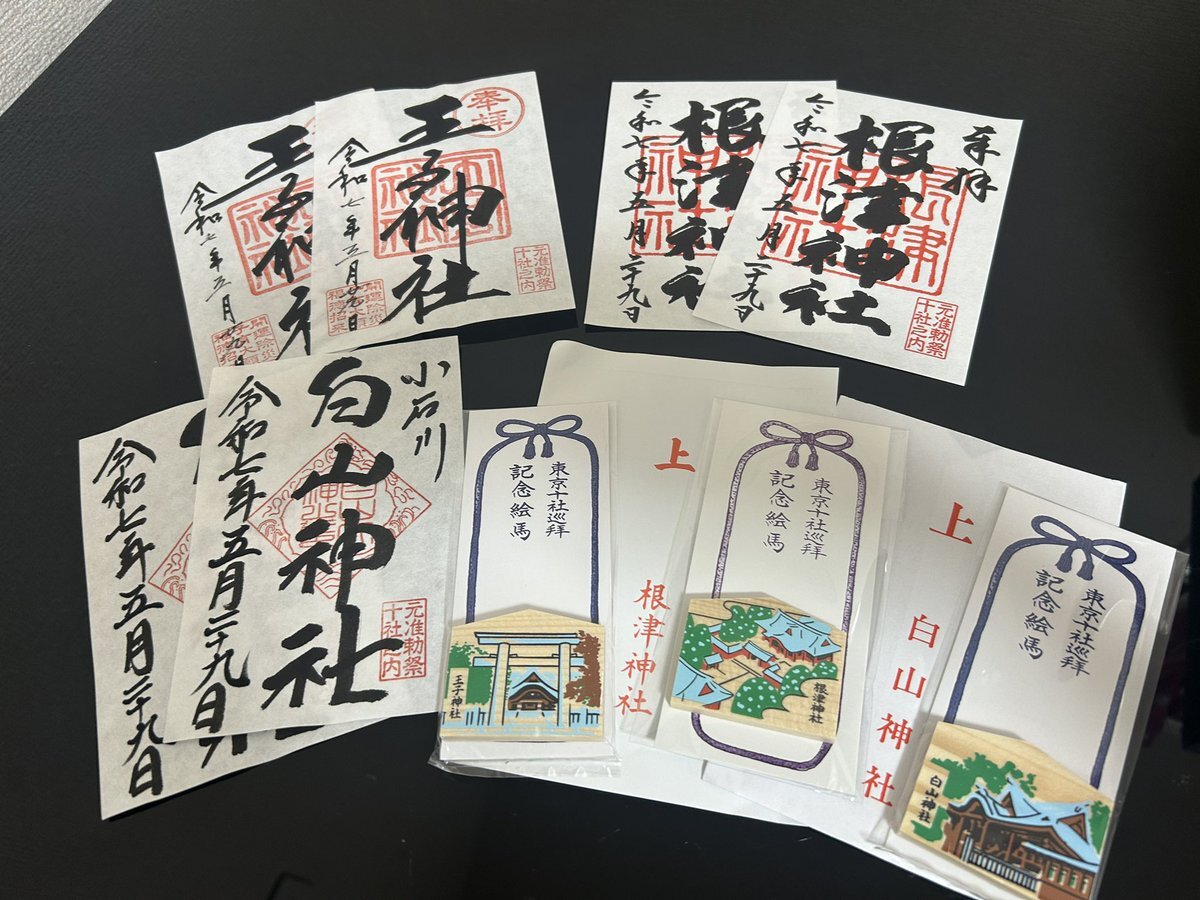 奉拝
王子神社
令和七年五月廿九日
元准勅祭
十社之内
開運除災
福徳招来
王子神社
令和七年五月廿九日
開運除災
奉拝
根津神社
令和七年五月二十九日
元准勅祭
十社之内
根津神社
令和七年五月二十九日
小石川
白山神社
令和七年五月二十九日
元准勅祭
十社之内
令和七年五月二十九日
東京十社巡拝
記念絵馬
王子神社
上
根津神社
東京十社巡拝
記念絵馬
根津神社
上
白山神社
東京十社巡拝
記念絵馬
白山神社